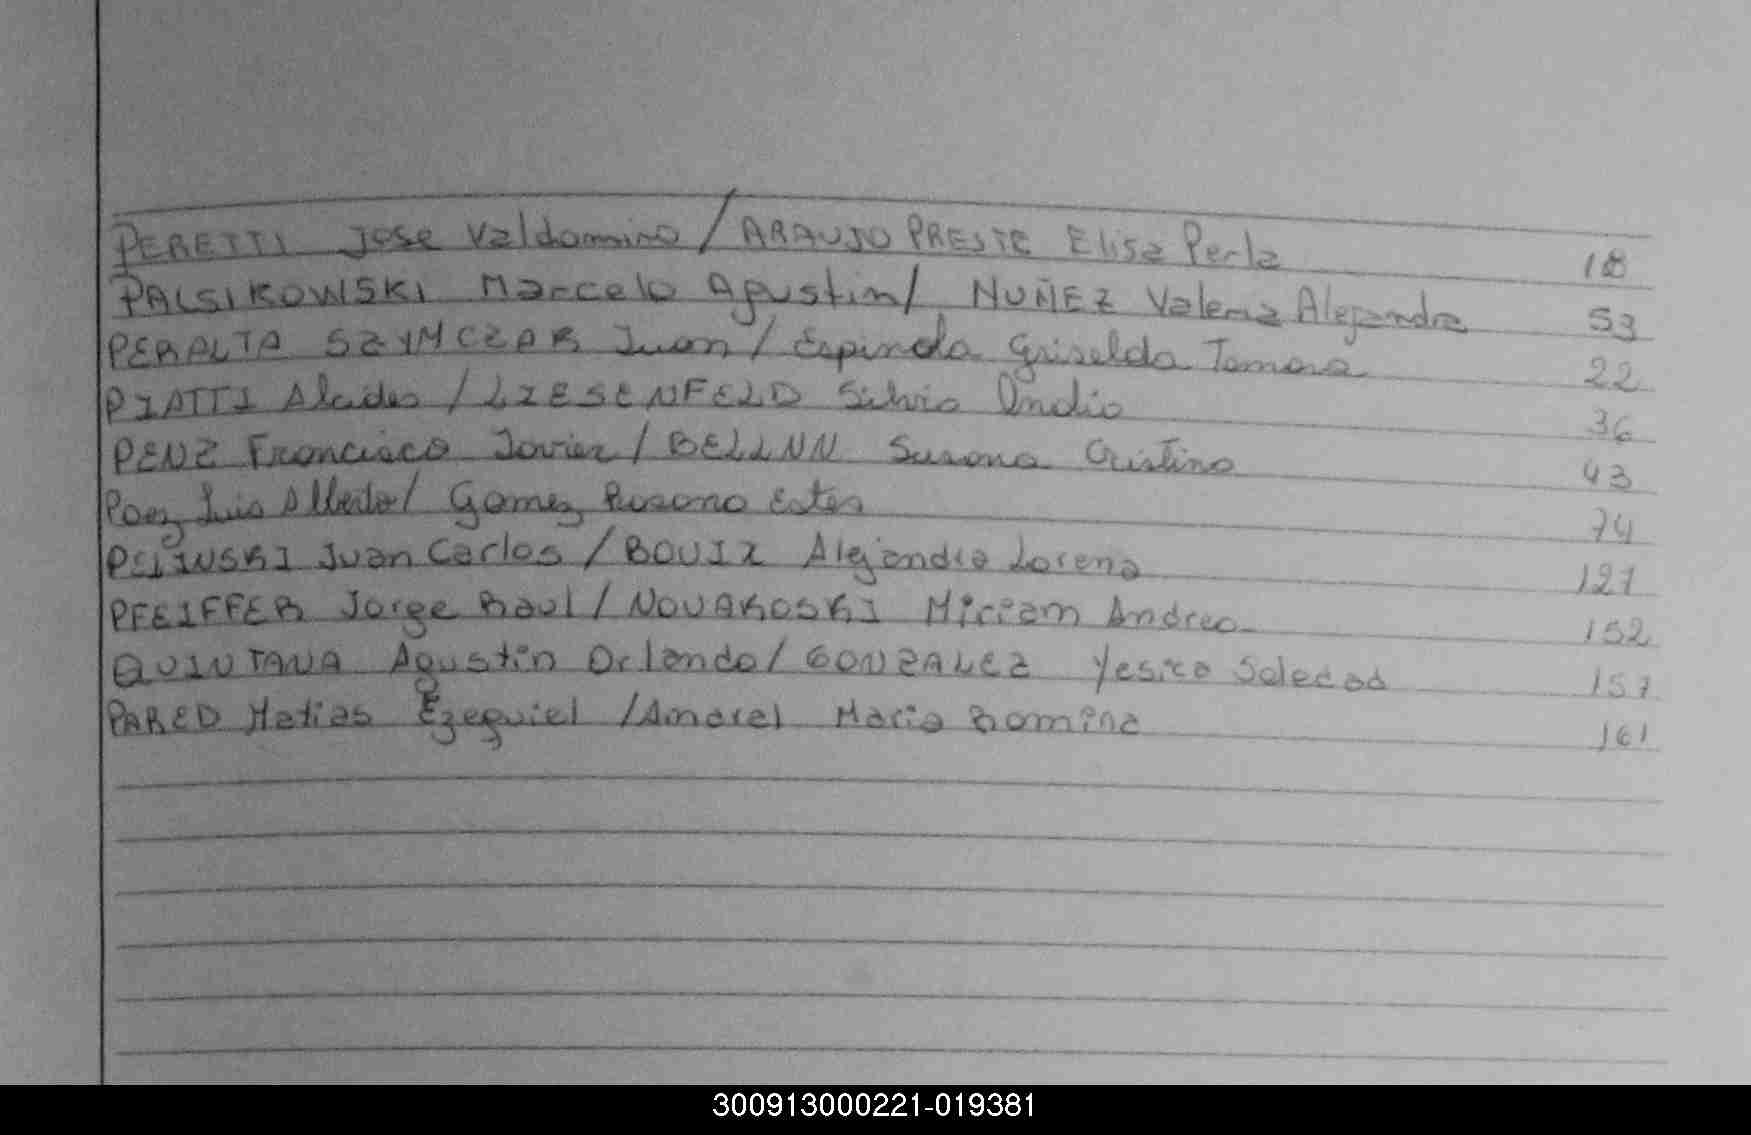 PERETTI Jose Valdomiro / ARAUJO PRESTE Elisa Perla 18
PALSIKOWSKI Marcelo Agustin / NUÑEZ Valeria Alejandra 53
PERALTA SZYMCZAK Juan / Espindola Griselda Tamara 22
PIATTI Alcides / LIESENFELD Silvia 36
PENZ Francisco Javier / BELLNN Susana Cristina 43
Paez Luis Alberto / Gomez Rosana Ester 74
Juan Carlos / BOUIX Alejandra Lorena 121
PFEIFFER Jorge Raul / NOVAKOSKI Miriam Andrea 152
QUINTANA Agustin Orlando / GONZALEZ Yesica Soledad 157
PARED Matias Ezequiel / Amarel Maria Romina 161
300913000221-019381